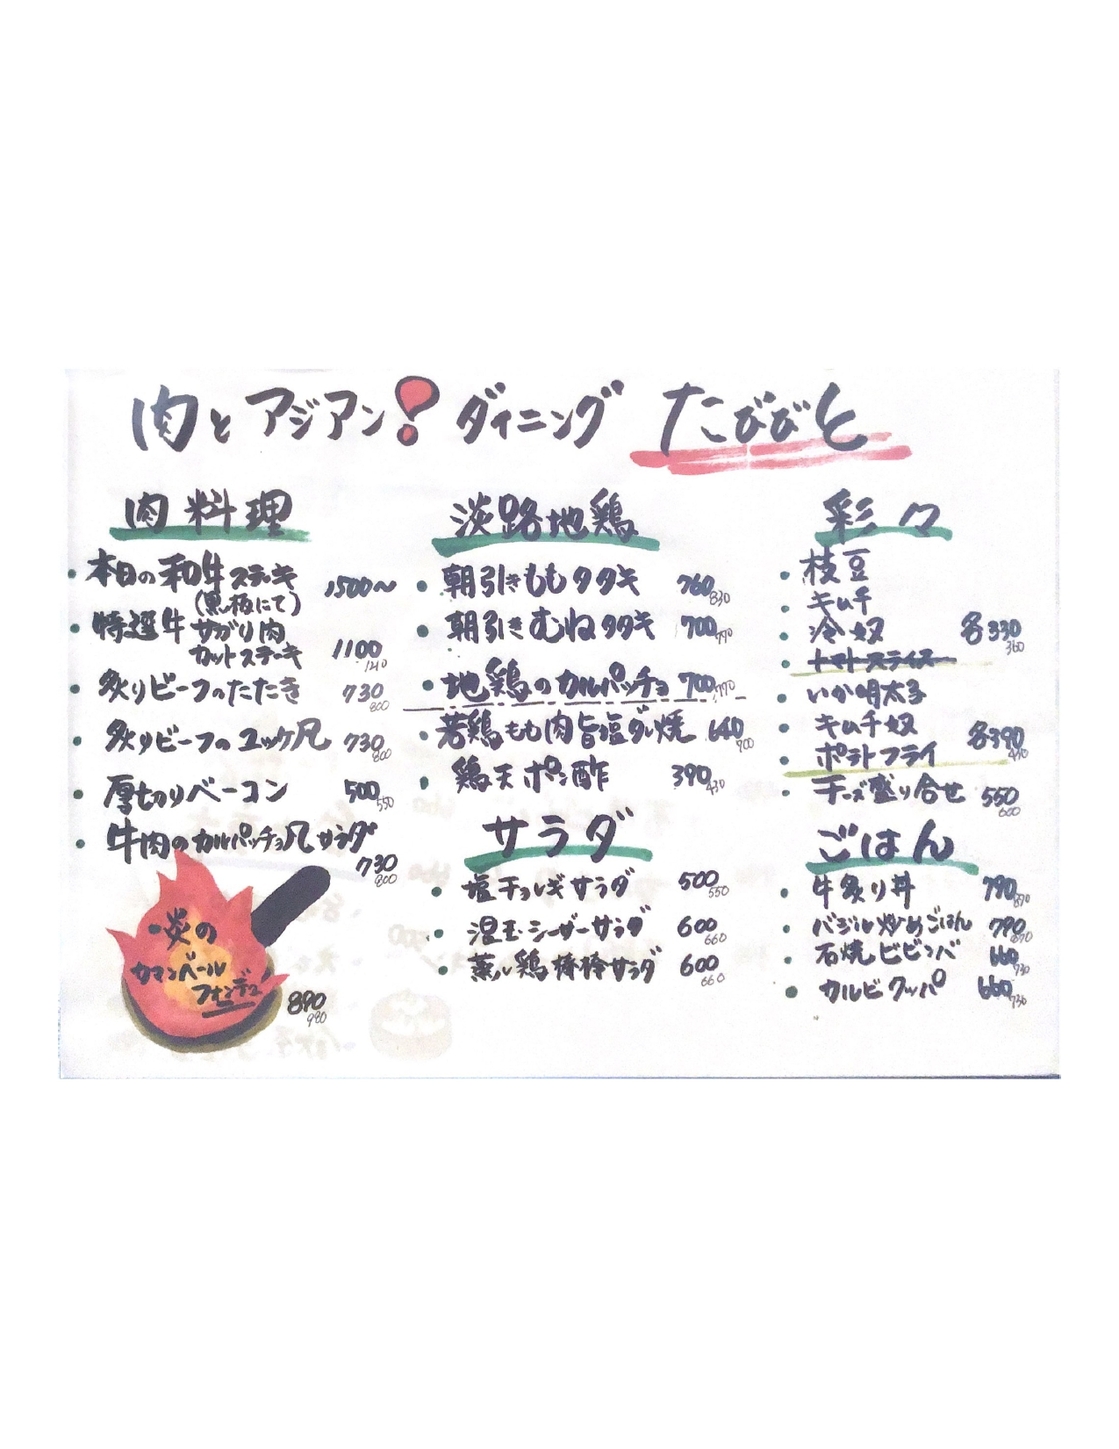 肉とアジアン!ダイニング たびびと
肉料理
本日の和牛ステーキ 1500~
(黒板にて)
特選牛 サガリ肉
カットステーキ 1100
1210
炙りビーフのたたき 730
800
炙りビーフのユッケ風 730
800
厚切りベーコン 500
550
牛肉のカルパッチョ風サラダ
730
800
炎の
カマンベール
フォンデュ 890
980
淡路地鶏
朝引きももタタキ 760
830
朝引きむねタタキ 700
770
地鶏のカルパッチョ 700
770
若鶏もも肉旨塩ダレ焼 640
700
鶏天ポン酢 390
430
サラダ
塩チョレギサラダ 500
550
温玉シーザーサラダ 600
660
蒸し鶏棒棒サラダ 600
660
彩々
枝豆
キムチ
冷奴 各330
360
トマトスライス
いか明太子
キムチ奴 各390
430
ポテトフライ
チーズ盛り合せ 550
600
ごはん
牛炙り丼 790
870
バジル炒めごはん 790
870
石焼ビビンバ 660
730
カルビクッパ 660
730